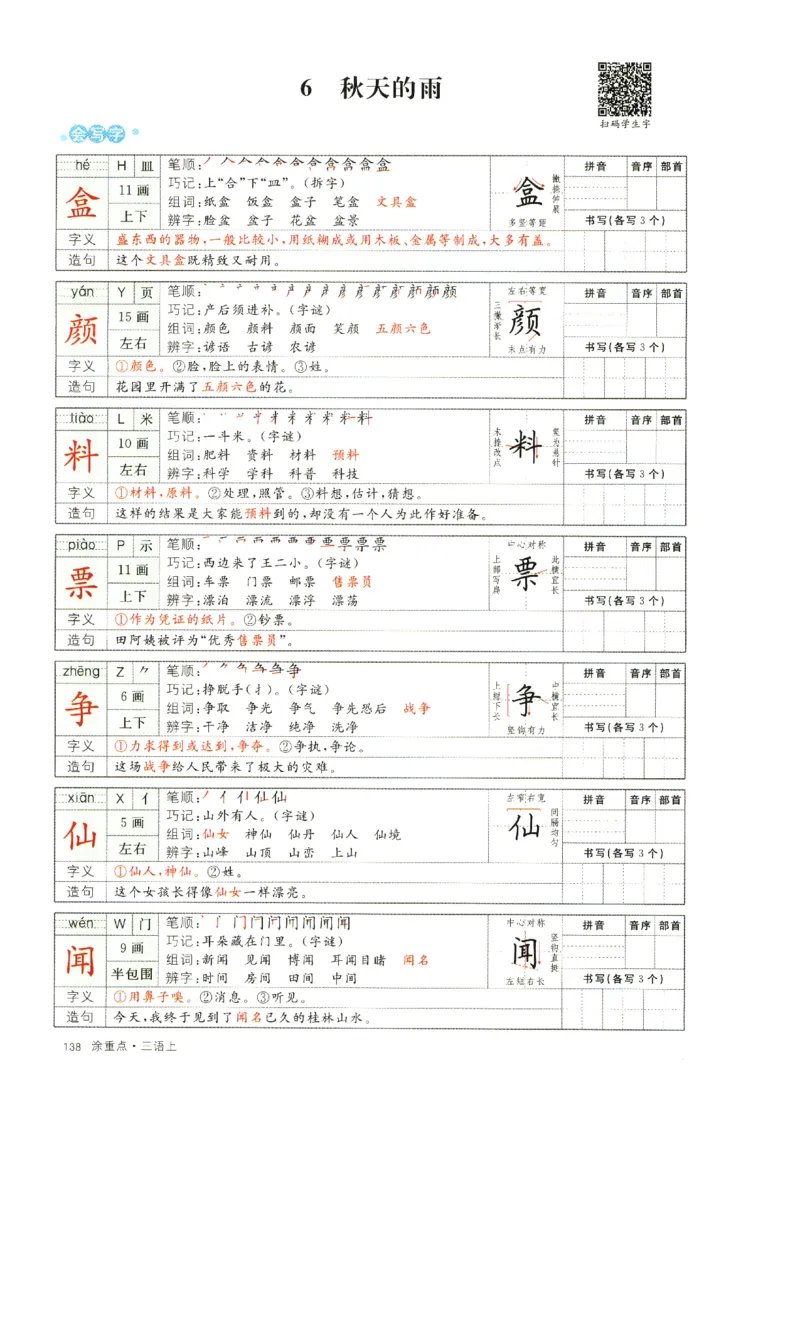 6 秋天的雨
扫码学生字
会写字
hé H 皿 笔顺:
盒 11画 上下
巧记:上“合”下“皿”。(拆字)
组词:纸盒 饭盒 盒子 笔盒 文具盒
辨字:脸盆 盆子 花盆 盆景
盒 撇捺伸展 多竖等距
拼音 音序 部首
书写(各写3个)
字义 盛东西的器物,一般比较小,用纸糊成或用木板、金属等制成,大多有盖。
造句 这个文具盒既精致又耐用。
yán Y 页 笔顺:
颜 15画 左右
巧记:产后须进补。(字谜)
组词:颜色 颜料 颜面 笑颜 五颜六色
辨字:谚语 古谚 农谚
左右等宽 三撇渐长 颜 末点有力
拼音 音序 部首
书写(各写3个)
字义 ①颜色。②脸,脸上的表情。③姓。
造句 花园里开满了五颜六色的花。
liào L 米 笔顺:
料 10画 左右
巧记:一斗米。(字谜)
组词:肥料 资料 材料 预料
辨字:科学 学科 科普 科技
末捺改点 料 竖为悬针
拼音 音序 部首
书写(各写3个)
字义 ①材料,原料。②处理,照管。③料想,估计,猜想。
造句 这样的结果是大家能预料到的,却没有一个人为此作好准备。
piào P 示 笔顺:
票 11画 上下
巧记:西边来了王二小。(字谜)
组词:车票 门票 邮票 售票员
辨字:漂泊 漂流 漂浮 漂荡
中心对称 上部写扁 票 此横宜长
拼音 音序 部首
书写(各写3个)
字义 ①作为凭证的纸片。②钞票。
造句 田阿姨被评为“优秀售票员”。
zhēng Z ⺈ 笔顺:
争 6画 上下
巧记:挣脱手(扌)。(字谜)
组词:争取 争光 争气 争先恐后 战争
辨字:干净 洁净 纯净 洗净
上短下长 争 中横宜长 竖钩有力
拼音 音序 部首
书写(各写3个)
字义 ①力求得到或达到,争夺。②争执,争论。
造句 这场战争给人民带来了极大的灾难。
xiān X 亻 笔顺:
仙 5画 左右
巧记:山外有人。(字谜)
组词:仙女 神仙 仙丹 仙人 仙境
辨字:山峰 山顶 山峦 上山
左窄右宽 仙 间隔均匀
拼音 音序 部首
书写(各写3个)
字义 ①仙人,神仙。②姓。
造句 这个女孩长得像仙女一样漂亮。
wén W 门 笔顺:
闻 9画 半包围
巧记:耳朵藏在门里。(字谜)
组词:新闻 见闻 博闻 耳闻目睹 闻名
辨字:时间 房间 田间 中间
中心对称 闻 竖钩直挺 左短右长
拼音 音序 部首
书写(各写3个)
字义 ①用鼻子嗅。②消息。③听见。
造句 今天,我终于见到了闻名已久的桂林山水。
138 涂重点·三语上